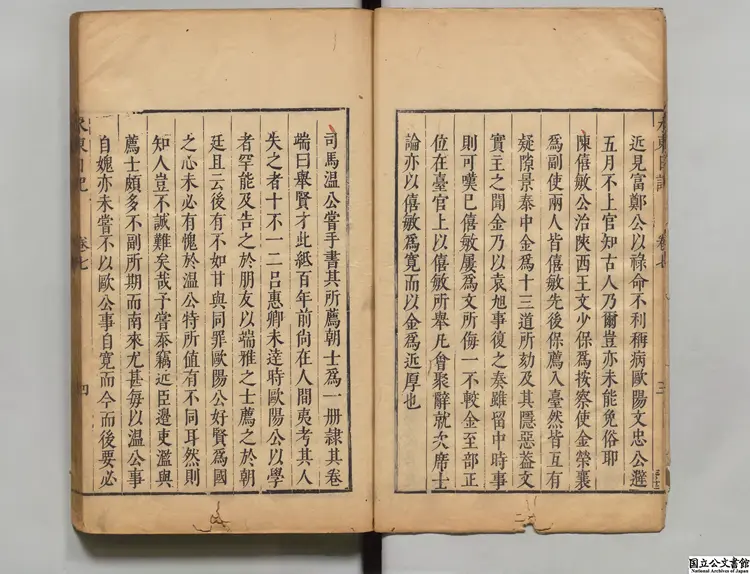 近見富鄭公以祿命不利稱病歐陽文忠公避
五月不上官知古人乃爾豈亦未能免俗耶
陳僖敏公治陝西王文少保爲按察使金榮襄
爲副使兩人皆僖敏先後保薦入臺然皆互有
疑隙景泰中金爲十三道所劾及其隱惡蓋文
實主之閒金乃以袁旭事復之奏雖留中時事
則可嘆已僖敏屢爲文所侮一不較金至部正
位在臺官上以僖敏所舉凡會聚辭就次席士
論亦以僖敏爲寬而以金爲近厚也
司馬温公嘗手書其所薦朝士爲一册隷其卷
端曰舉賢才此紙百年前尚在人間夷考其人
失之者十不一二吕惠卿未達時歐陽公以學
者罕能及告之於朋友以端雅之士薦之於朝
廷且云後有不如甘與同罪歐陽公好賢爲國
之心未必有愧於温公特所値有不同耳然則
知人豈不誠難矣哉予嘗忝竊近臣邊吏濫與
薦士頗多不副所期而南來尤甚每以温公事
自媿亦未嘗不以歐公事自寬而今而後要必
卷七
四
国立公文書館
National Archives of Japan